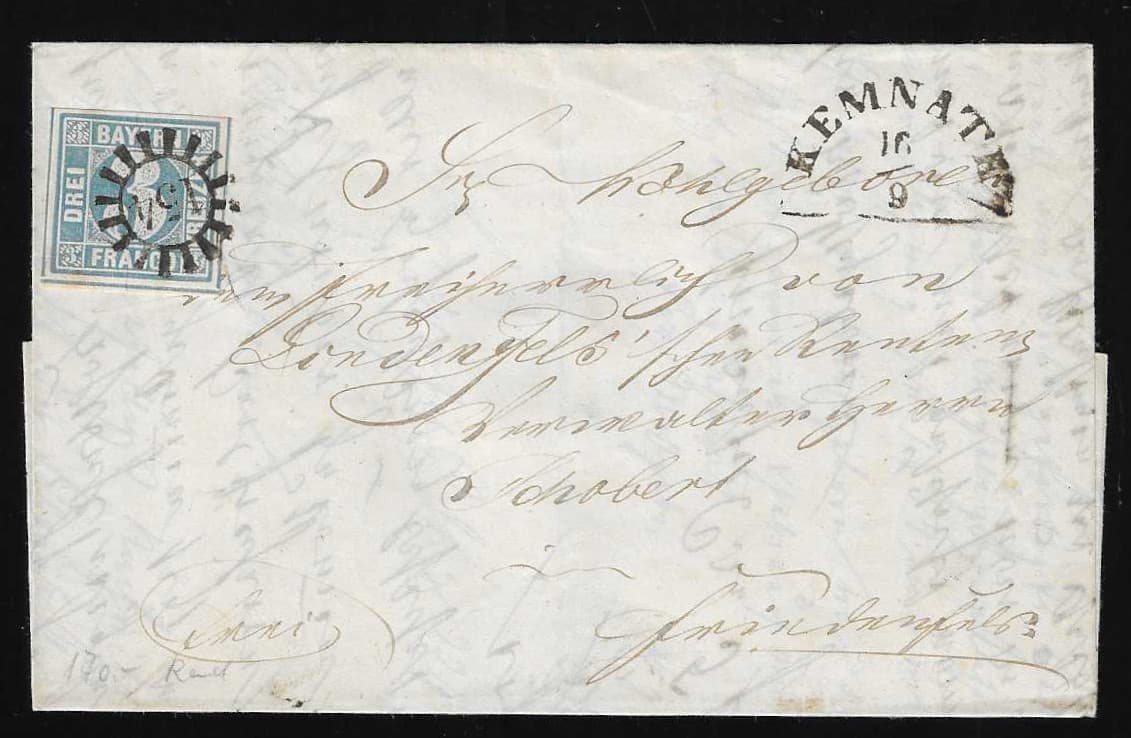 BAYERN
DREI
3
KREUZER
FRANCO
154
KEMNATH
16
9
Sr Wohlgeboren
dem freiherrlich von
Lindenfels'schen Renten
Verwalter Herrn
Schobert
in
frei
Friedenfels.
170.-